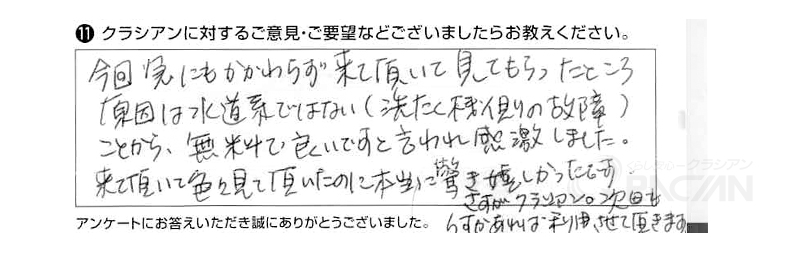 ⑪ クラシアンに対するご意見・ご要望などございましたらお教えください。
今回急にもかかわらず来て頂いて見てもらったところ
原因は水道系ではない(洗たく機側の故障)
ことから、無料で良いですと言われ感激しました。
来て頂いて色々見て頂いたのに本当に驚き嬉しかったです
さすがクラシアン。次回も
アンケートにお答えいただき誠にありがとうございました。
あれば利用させて頂きます
クラシアン